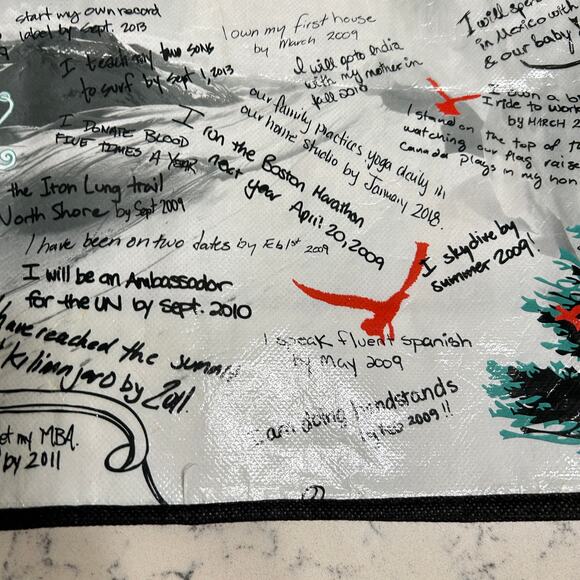 start my own record
label by Sept. 2013
I own my first house
by March 2009
I will spend
in Mexico with
& our baby
I teach my two sons
to surf by Sept 1, 2013
I will go to India
with my mother in
fall 2010
I own a b
I ride to work
by MARCH 2
I DONATE BLOOD
FIVE TIMES A YEAR
I run the Boston Marathon
next year April 20, 2009
our family practices yoga daily in
our home studio by January 2018.
I stand on the top of the
watching our flag raise
Canada plays in my hon
the Iron Lung trail
North Shore by Sept 2009
I have been on two dates by Feb 1st 2009
I skydive by
summer 2009!
I will be an Ambassador
for the UN by Sept. 2010
have reached the summit
Kilimnjaro by 2011.
I speak fluent spanish
by May 2009
I am doing handstands
by 2009!!
et my MBA.
by 2011